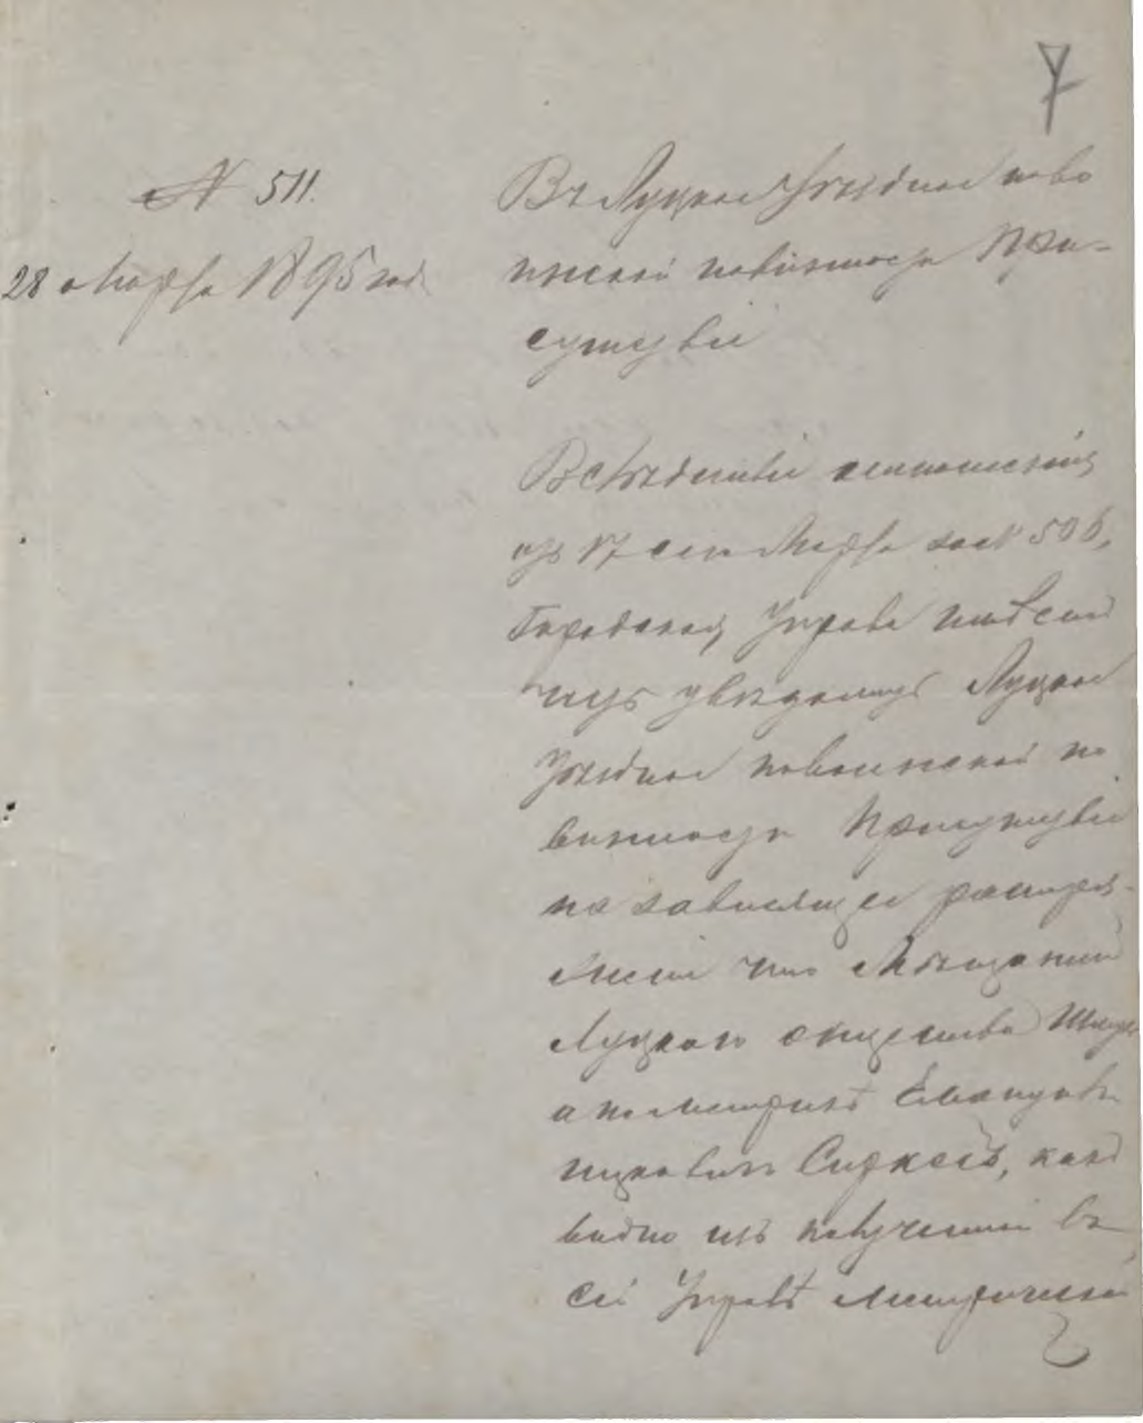 7
№ 511.
28 Марта 1895 года
Въ Луцкое Уѣздное по во
инской повинности При-
сутствіе
Вслѣдствіе отношенія
отъ 17 сего Марта за № 506,
Городская Управа имѣетъ
честь увѣдомить Луцкое
Уѣздное по воинской по
винности Присутствіе
на зависящее распоря-
женіе что Мѣщанинъ
Луцкаго общества
а по метрикѣ
Сиркесъ, какъ
видно изъ полученной въ
сей Управѣ метрической